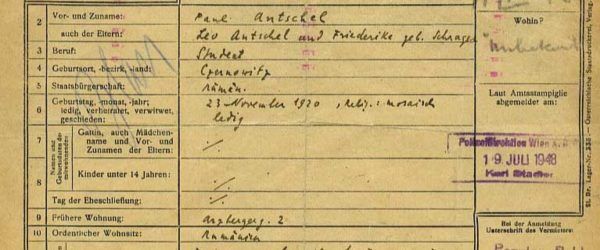 2 Vor- und Zuname: Paul Antschel
auch der Eltern: Leo Antschel und Friederike geb. Schrager
3 Beruf: Student
4 Geburtsort, -bezirk, -land: Czernowitz
5 Staatsbürgerschaft: Rumän.
6 Geburtstag, -monat, -jahr; 23 November 1920, Relig.: mosaisch
ledig, verheiratet, verwitwet, geschieden: ledig
7 Gattin, auch Mädchenname und Vor- und Zunamen der Eltern: ./.
Namen und Geburtsdaten der mitwohnenden
8 Kinder unter 14 Jahren: ./.
Tag der Eheschließung: ./.
9 Frühere Wohnung: 2
10 Ordentlicher Wohnsitz: Rumänien
Wohin?
Unbekannt
Laut Amtsstampiglie
abgemeldet am:
Polizeidirektion Wien
19. JULI 1948
Karl Stadler
Bei der Anmeldung
Unterschrift des Vermieters:
St. Dr. Lager-Nr. 335. — Österreichische Staatsdruckerei, Verlag.